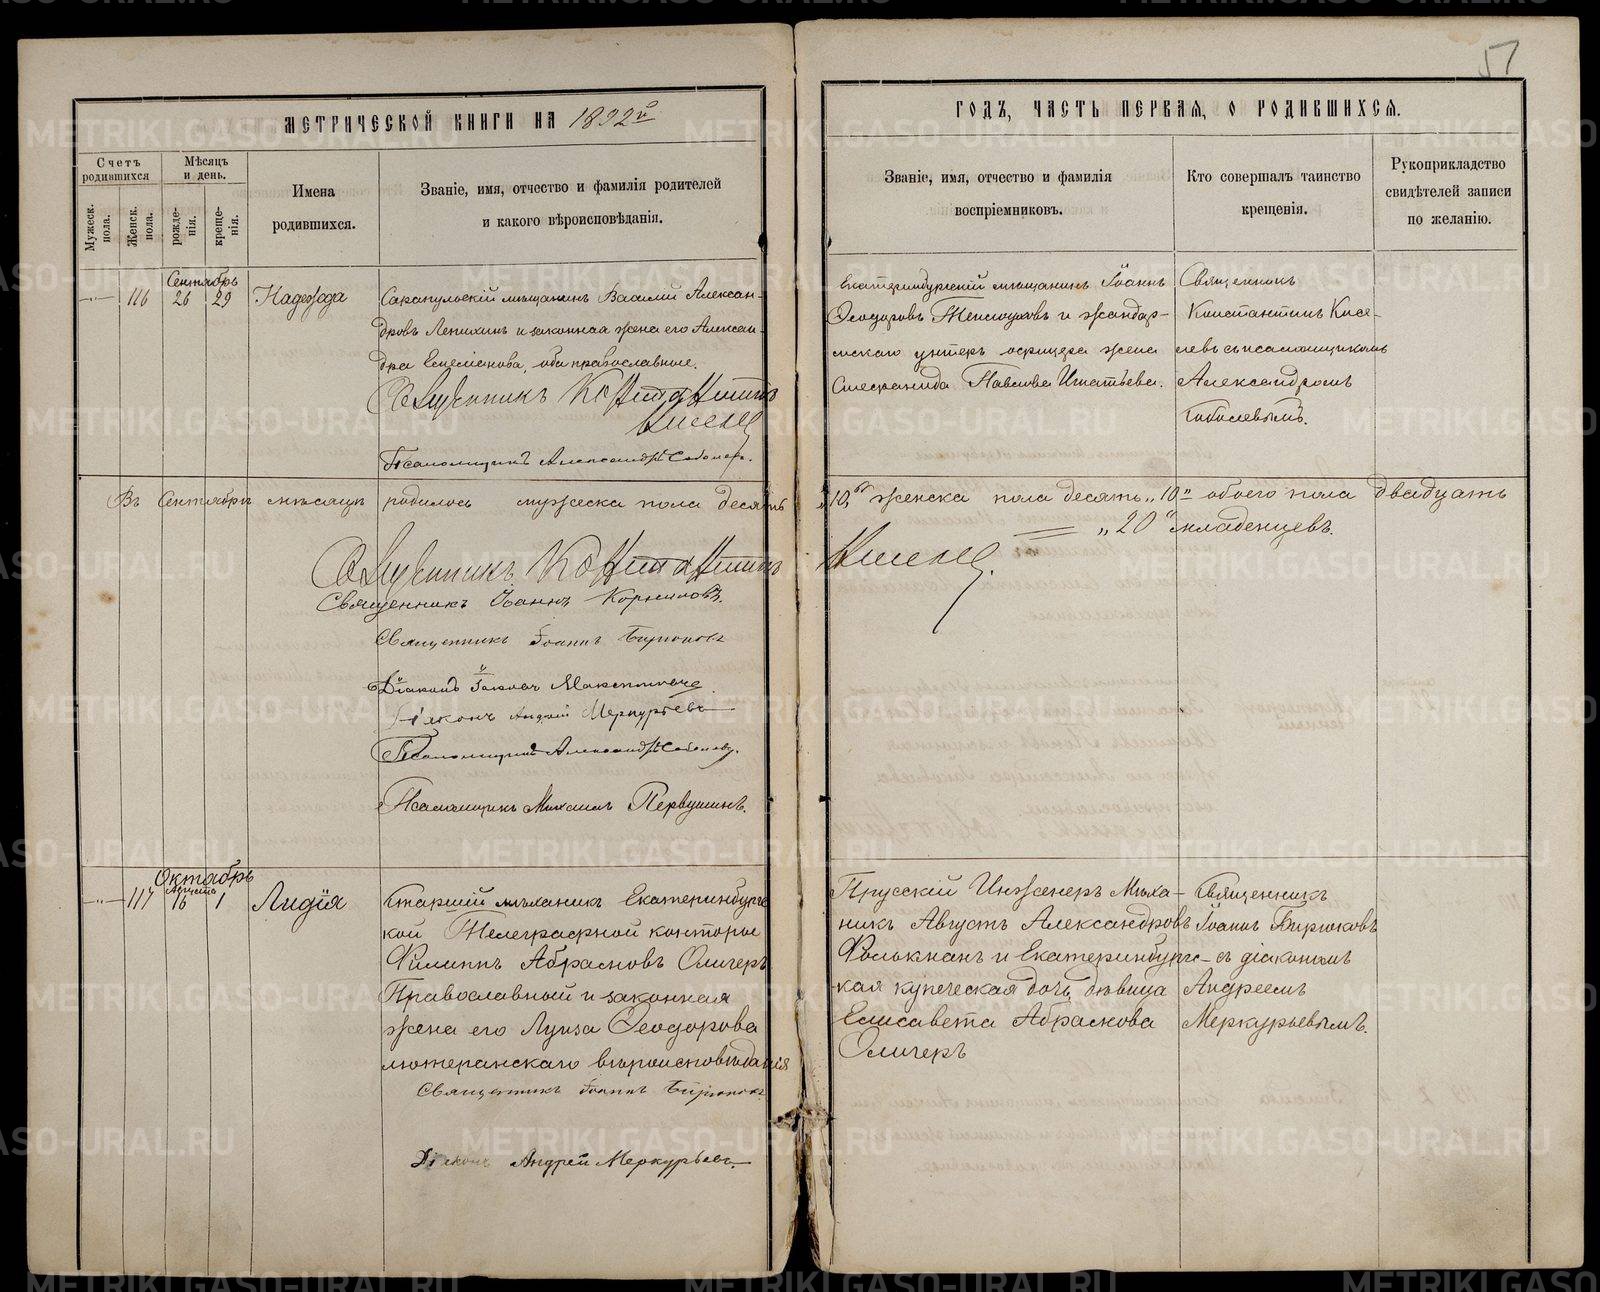 57
МЕТРИЧЕСКОЙ КНИГИ НА 1892й
Счетъ родившихся
Мѣсяцъ и день.
Имена родившихся.
Званіе, имя, отчество и фамилія родителей
и какого вѣроисповѣданія.
Мужеск. пола.
Женск. пола.
рожде-нія.
креще-нія.
Сентябрь
116 26 29 Надежда
Сарапульскій мѣщанинъ Василій Алексан-
дровъ Лепихинъ и законная жена его Алексан-
дра Емеліанова, оба православные.
Священникъ Константинъ
Киселевъ
Псаломщикъ Александръ Соболевъ.
Въ Сентябрѣ мѣсяцѣ родилось мужеска пола десять
Священникъ Константинъ
Священникъ Іоаннъ Корниловъ.
Священникъ Іоаннъ Бирюковъ
Діаконъ Іаковъ
Діаконъ Андрей Меркурьевъ
Псаломщикъ Александръ Соболевъ.
Псаломщикъ Михаилъ Первушинъ.
Октябрь
Августа
117 16 1 Лидія
Старшій механикъ Екатеринбургс
кой Телеграфной конторы
Филиппъ Абрамовъ Оличеръ
Православный и законная
жена его Луиза Ѳеодорова
лютеранскаго вѣроисповѣданія
Священникъ Іоаннъ Бирюковъ
Діаконъ Андрей Меркурьевъ
ГОДЪ, ЧАСТЬ ПЕРВАЯ, О РОДИВШИХСЯ.
Званіе, имя, отчество и фамилія
воспріемниковъ.
Кто совершалъ таинство
крещенія.
Рукоприкладство
свидѣтелей записи
по желанію.
Екатеринбургскій мѣщанинъ Іоаннъ
Ѳеодоровъ и жандар-
мскаго унтеръ офицера жена
Стефанида Павлова Игнатьева.
Священникъ
Константинъ Кисе-
левъ съ псаломщикомъ
Александромъ
Соболевымъ.
„10„ женска пола десять „10„ обоего пола двадцать
„20„ младенцевъ.
Киселевъ.
Прусскій Инженеръ Меха-
никъ Августъ Александровъ
Фолькманъ и Екатеринбургс-
кая купеческая дочь, дѣвица
Елисавета Абрамова
Оличеръ
Священникъ
Іоаннъ Бирюковъ
съ діакономъ
Андреемъ
Меркурьевымъ.
METRIKI.GASO-URAL.RU